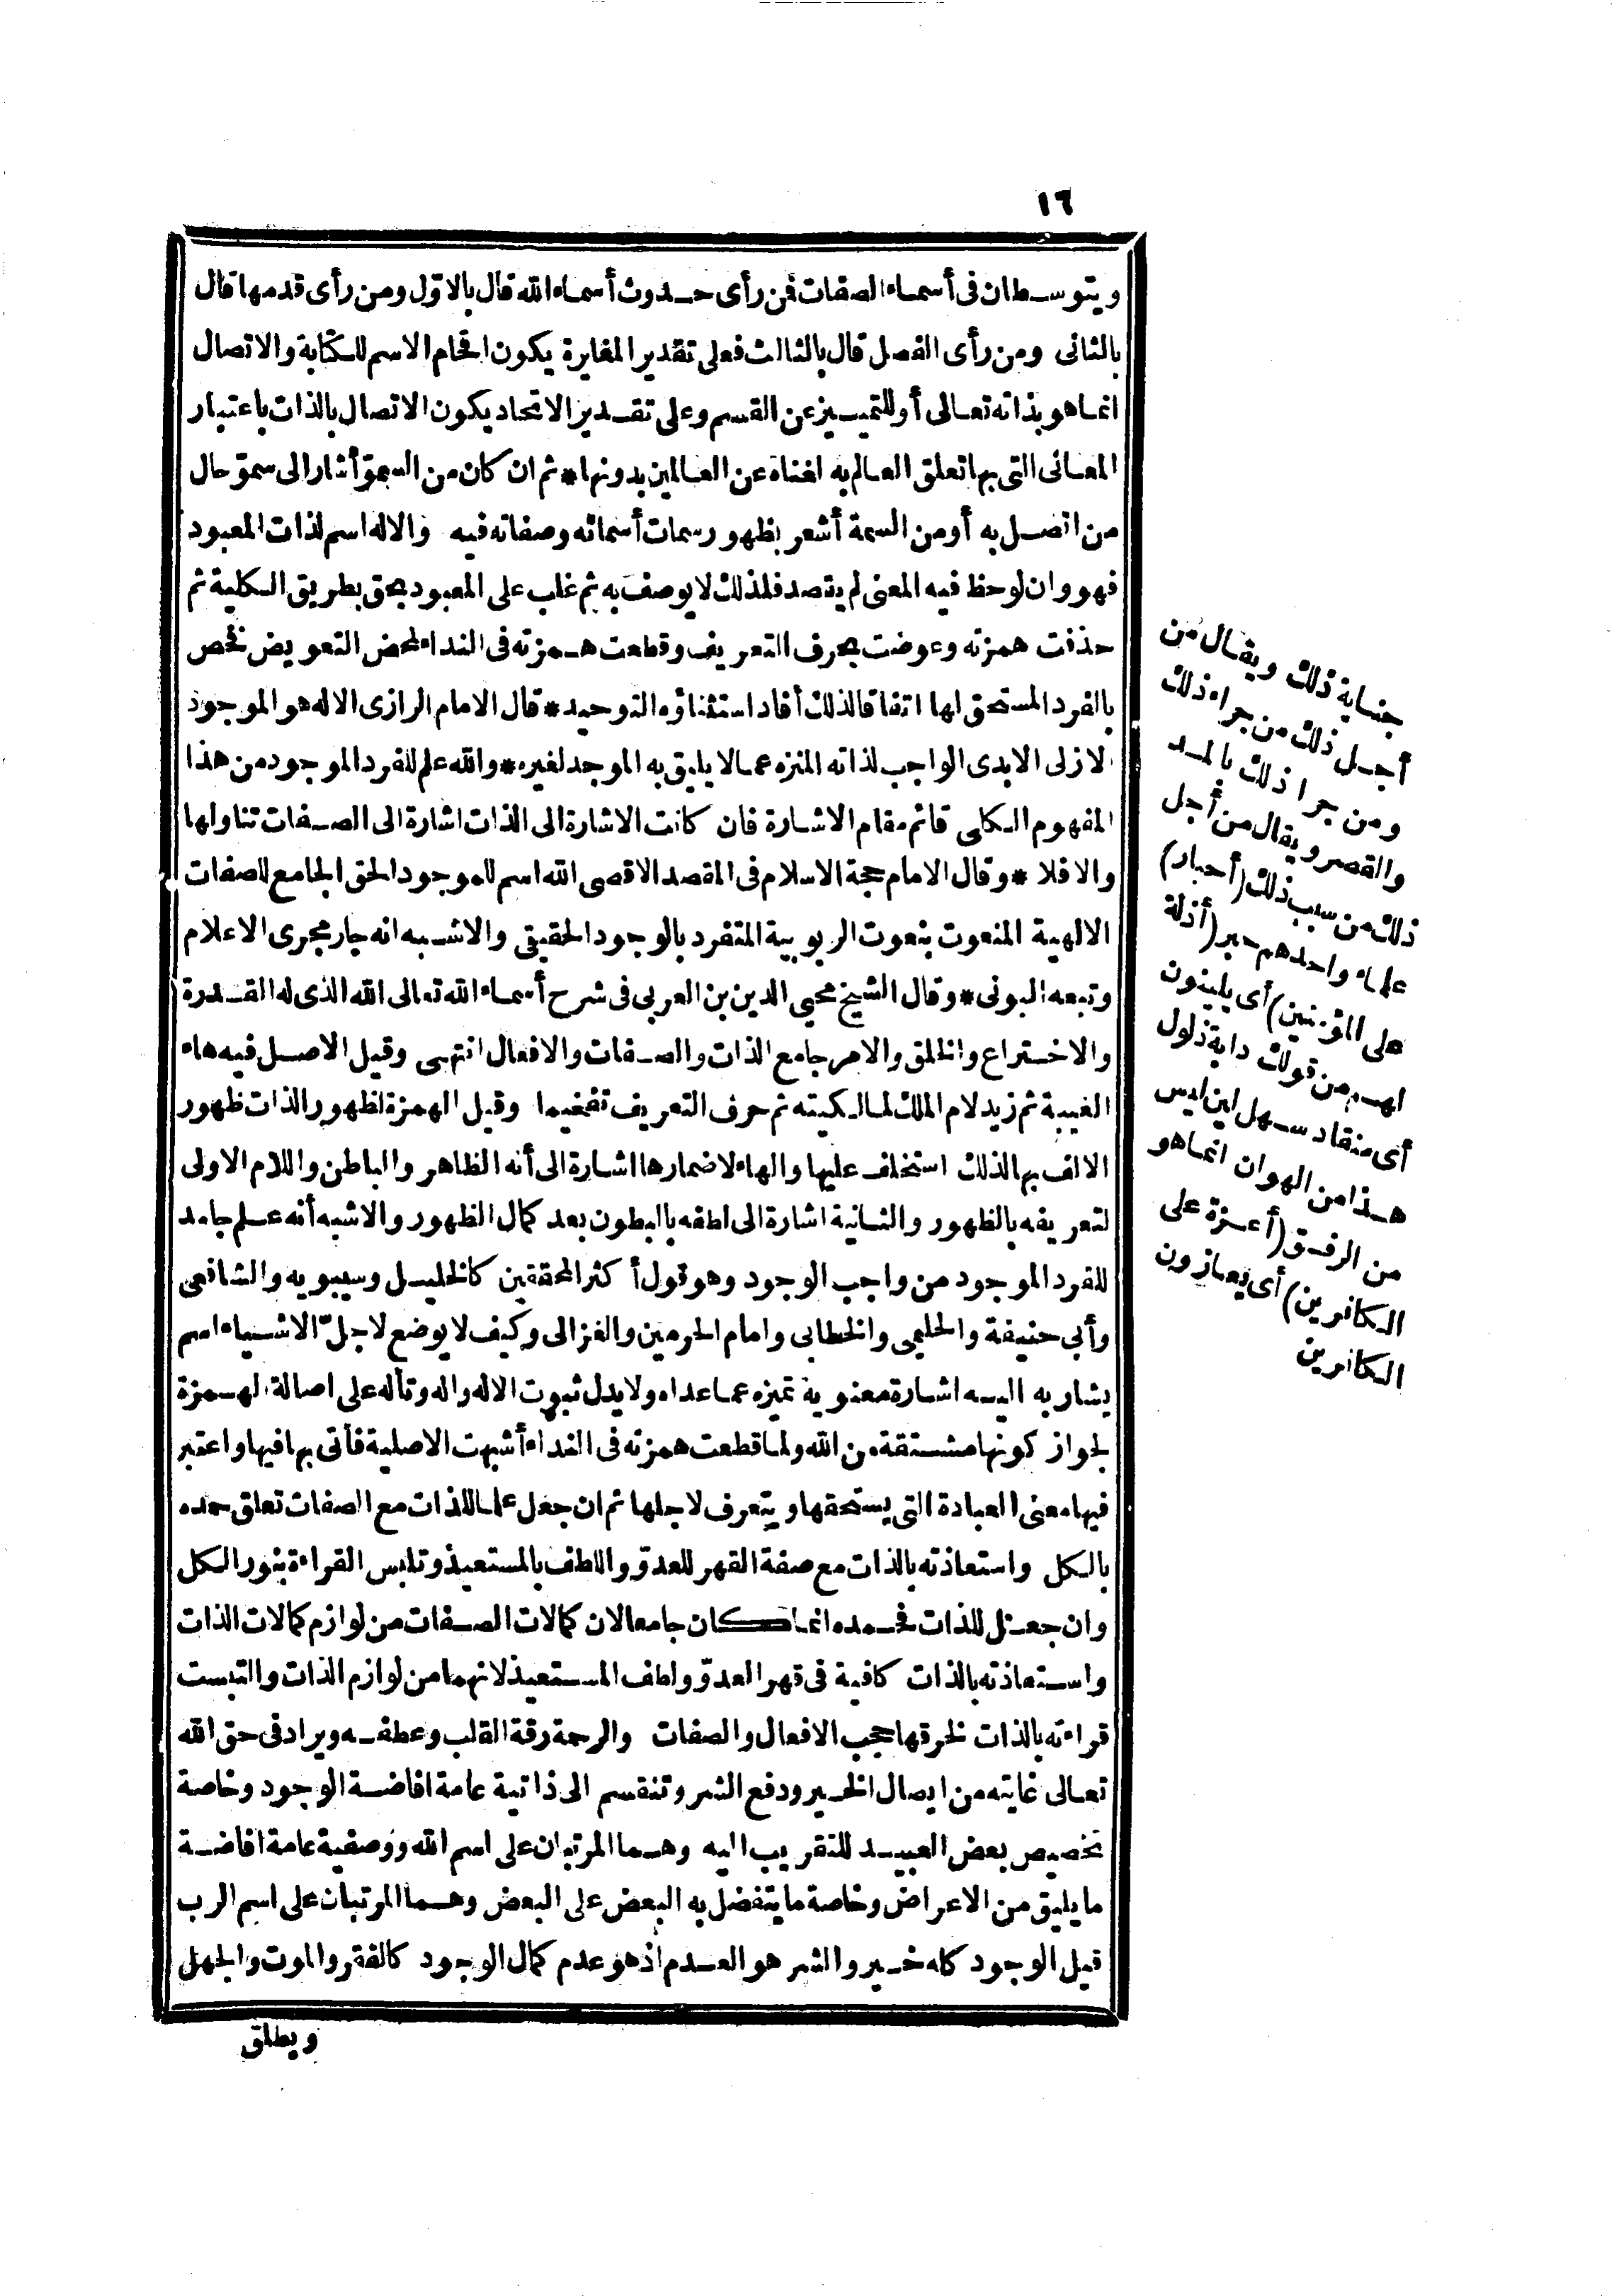 ١٦
ويتوسطان فى أسماء الصفات فمن رأى حدوث أسماء الله قال بالاوّل ومن رأى قدمها قال
بالثانى ومن رأى الفصل قال بالثالث فعلى تقدير المغايرة يكون اقحام الاسم للكتابة والاتصال
انما هو بذاته تعالى أو للتمييز عن القسم وعلى تقدير الاتحاد يكون الاتصال بالذات باعتبار
المعانى التى بها تعلق العالم به لغناه عن العالمين بدونها * ثم ان كان من السموّ أشار الى سموّ حال
من اتصل به أو من السمة أشعر بظهور سمات أسمائه وصفاته فيه والاله اسم لذات المعبود
فهو وان لوحظ فيه المعنى لم يقصد فلذلك لا يوصف به ثم غلب على المعبود بحق بطريق الكلية ثم
حذفت همزته وعوضت بحرف التعريف وقطعت همزته فى النداء لمحض التعويض فخص
بالفرد المستحق لها اتفاقا لذلك أفاد استثناؤه التوحيد * قال الامام الرازى الاله هو الموجود
الازلى الابدى الواجب لذاته المنزه عما لا يليق به الموجد لغيره * والله علم للفرد الموجود من هذا
المفهوم الكلى قائم مقام الاشارة فان كانت الاشارة الى الذات اشارة الى الصفات تناولها
والا فلا * وقال الامام حجة الاسلام فى المقصد الاقصى الله اسم للموجود الحق الجامع للصفات
الالهية المنعوت بنعوت الربوبية المتفرد بالوجود الحقيقى والاشبه انه جار مجرى الاعلام
وتبعه البونى * وقال الشيخ محيى الدين بن العربى فى شرح أسماء الله تعالى الله الذى له القدرة
والاختراع والخلق والامر جامع الذات والصفات والافعال انتهى وقيل الاصل فيه هاء
الغيبة ثم زيد لام الملك لمالكيته ثم حرف التعريف تفخيما وقيل الهمزة لظهور الذات ظهور
الالف بها لذلك استخلف عليها والهاء لاضمارها اشارة الى أنه الظاهر والباطن واللام الاولى
لتعريفه بالظهور والثانية اشارة الى لطفه بالبطون بعد كمال الظهور والاشبه أنه علم جامد
للفرد الموجود من واجب الوجود وهو قول أكثر المحققين كالخليل وسيبويه والشافعى
وأبى حنيفة والحليمى والخطابى وامام الحرمين والغزالى وكيف لا يوضع لاجلّ الاشياء اسم
يشار به اليه اشارة معنوية تميزه عما عداه ولا يدل ثبوت الاله واله وتأله على اصالة الهمزة
لجواز كونها مشتقة من الله ولما قطعت همزته فى النداء أشبهت الاصلية فأتى بها فيها واعتبر
فيها معنى العبادة التى يستحقها ويتعرف لاجلها ثم ان جعل علما للذات مع الصفات تعلق حمده
بالكل واستعاذته بالذات مع صفة القهر للعدوّ واللطف بالمستعيذ وتلبس القراءة بنور الكل
وان جعل للذات فحمده انما كان جامعا لان كمالات الصفات من لوازم كمالات الذات
واستعاذته بالذات كافية فى قهر العدوّ ولطف المستعيذ لانهما من لوازم الذات والتبست
قراءته بالذات لخرقها حجب الافعال والصفات والرحمة رقة القلب وعطفه ويراد فى حق الله
تعالى غايته من ايصال الخير ودفع الشر وتنقسم الى ذاتية عامة افاضة الوجود وخاصة
تخصيص بعض العبيد للتقريب اليه وهما المرتبان على اسم الله ووصفية عامة افاضة
ما يليق من الاعراض وخاصة ما يتفضل به البعض على البعض وهما المرتبان على اسم الرب
قيل الوجود كله خير والشر هو العدم اذ هو عدم كمال الوجود كالفقر والموت والجهل
ويطلق
جناية ذلك ويقال من
أجل ذلك من جراء ذلك
ومن جرا ذلك بالمد
والقصر ويقال من أجل
ذلك من سبب ذلك (أحبار)
علماء واحدهم حبر (أذلة
على المؤمنين) أى يلينون
لهم من قولك دابة ذلول
أى منقاد سهل لين ليس
هذا من الهوان انما هو
من الرفق (أعزة على
الكافرين) أى يعازون
الكافرين